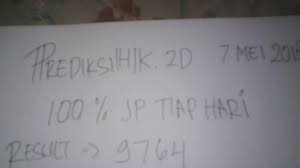 PREDIKSI|H|K. 2D 7 MEI
100 % JP TIAP HARI
RESULT => 9764